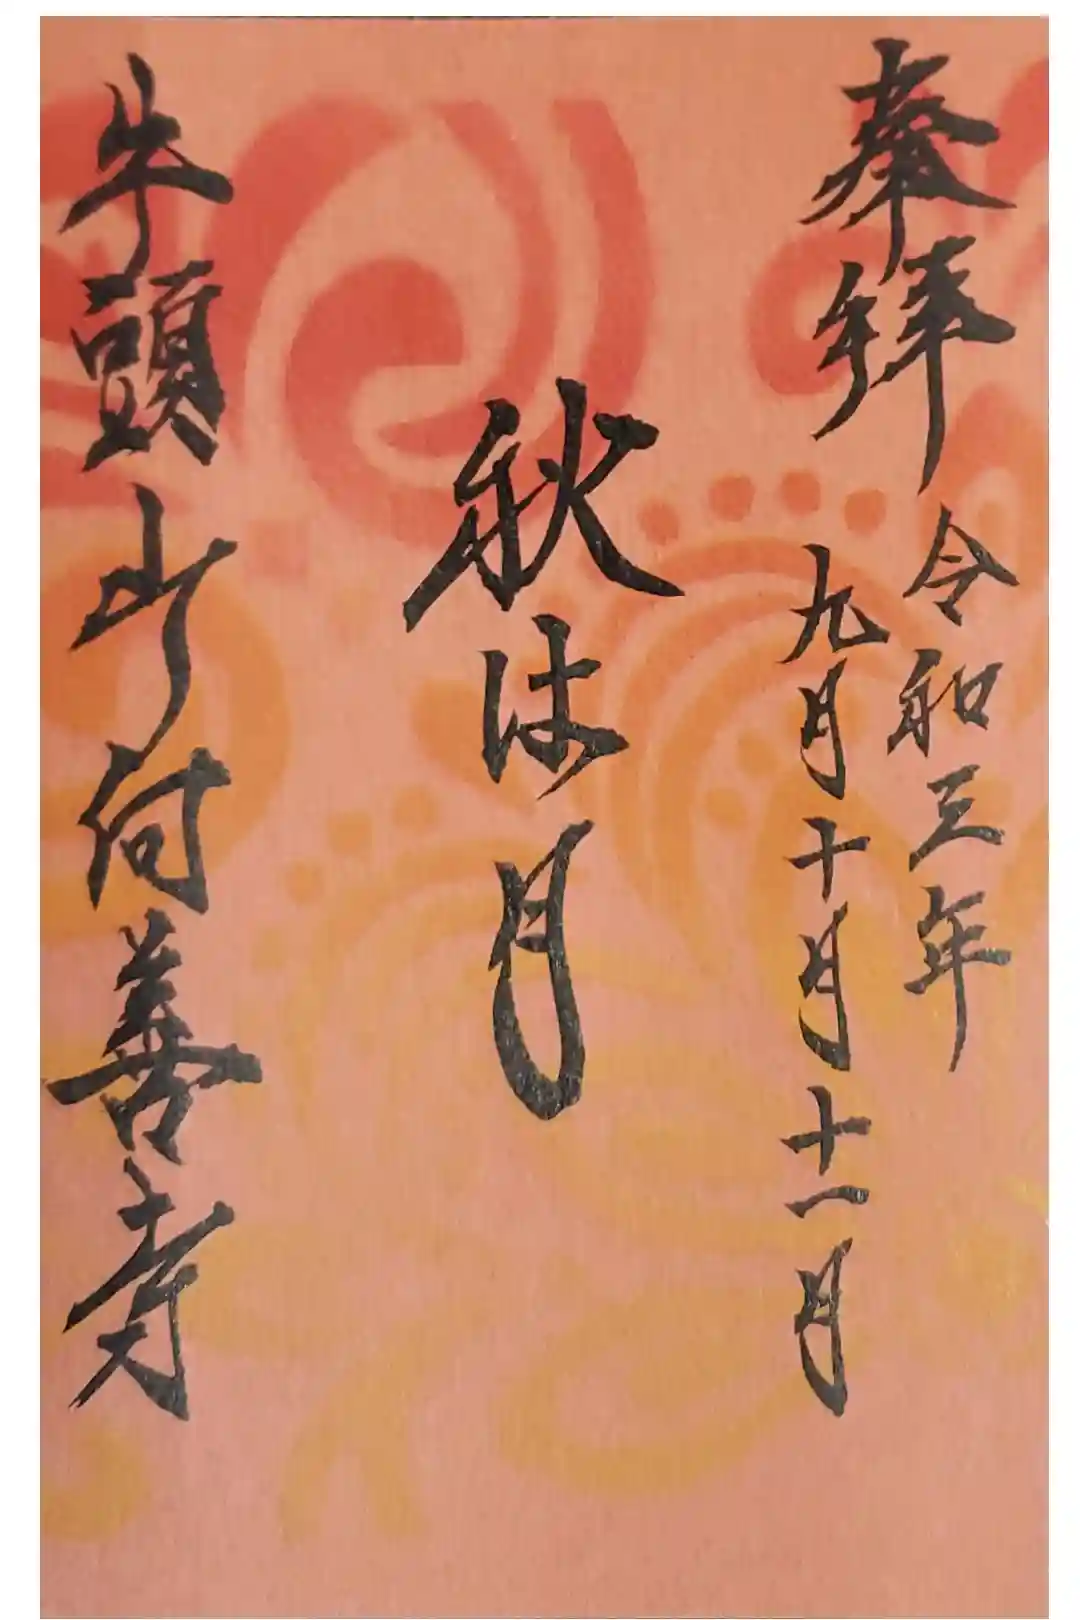 奉拝 令和三年
九月十月十一月
秋は月
牛頭山向善寺